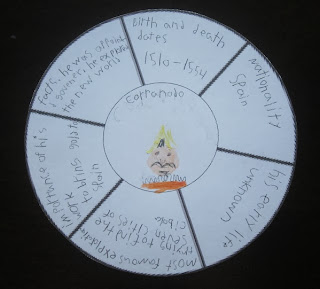 birth and death
dates
1510-1554
Nationality
Spain
his early life
unknown
most famous
trying to find the
seven cities of
cibola
importance of his
work
able
to build
spain
facts, he was
governer, he explored
the new world
Corranodo